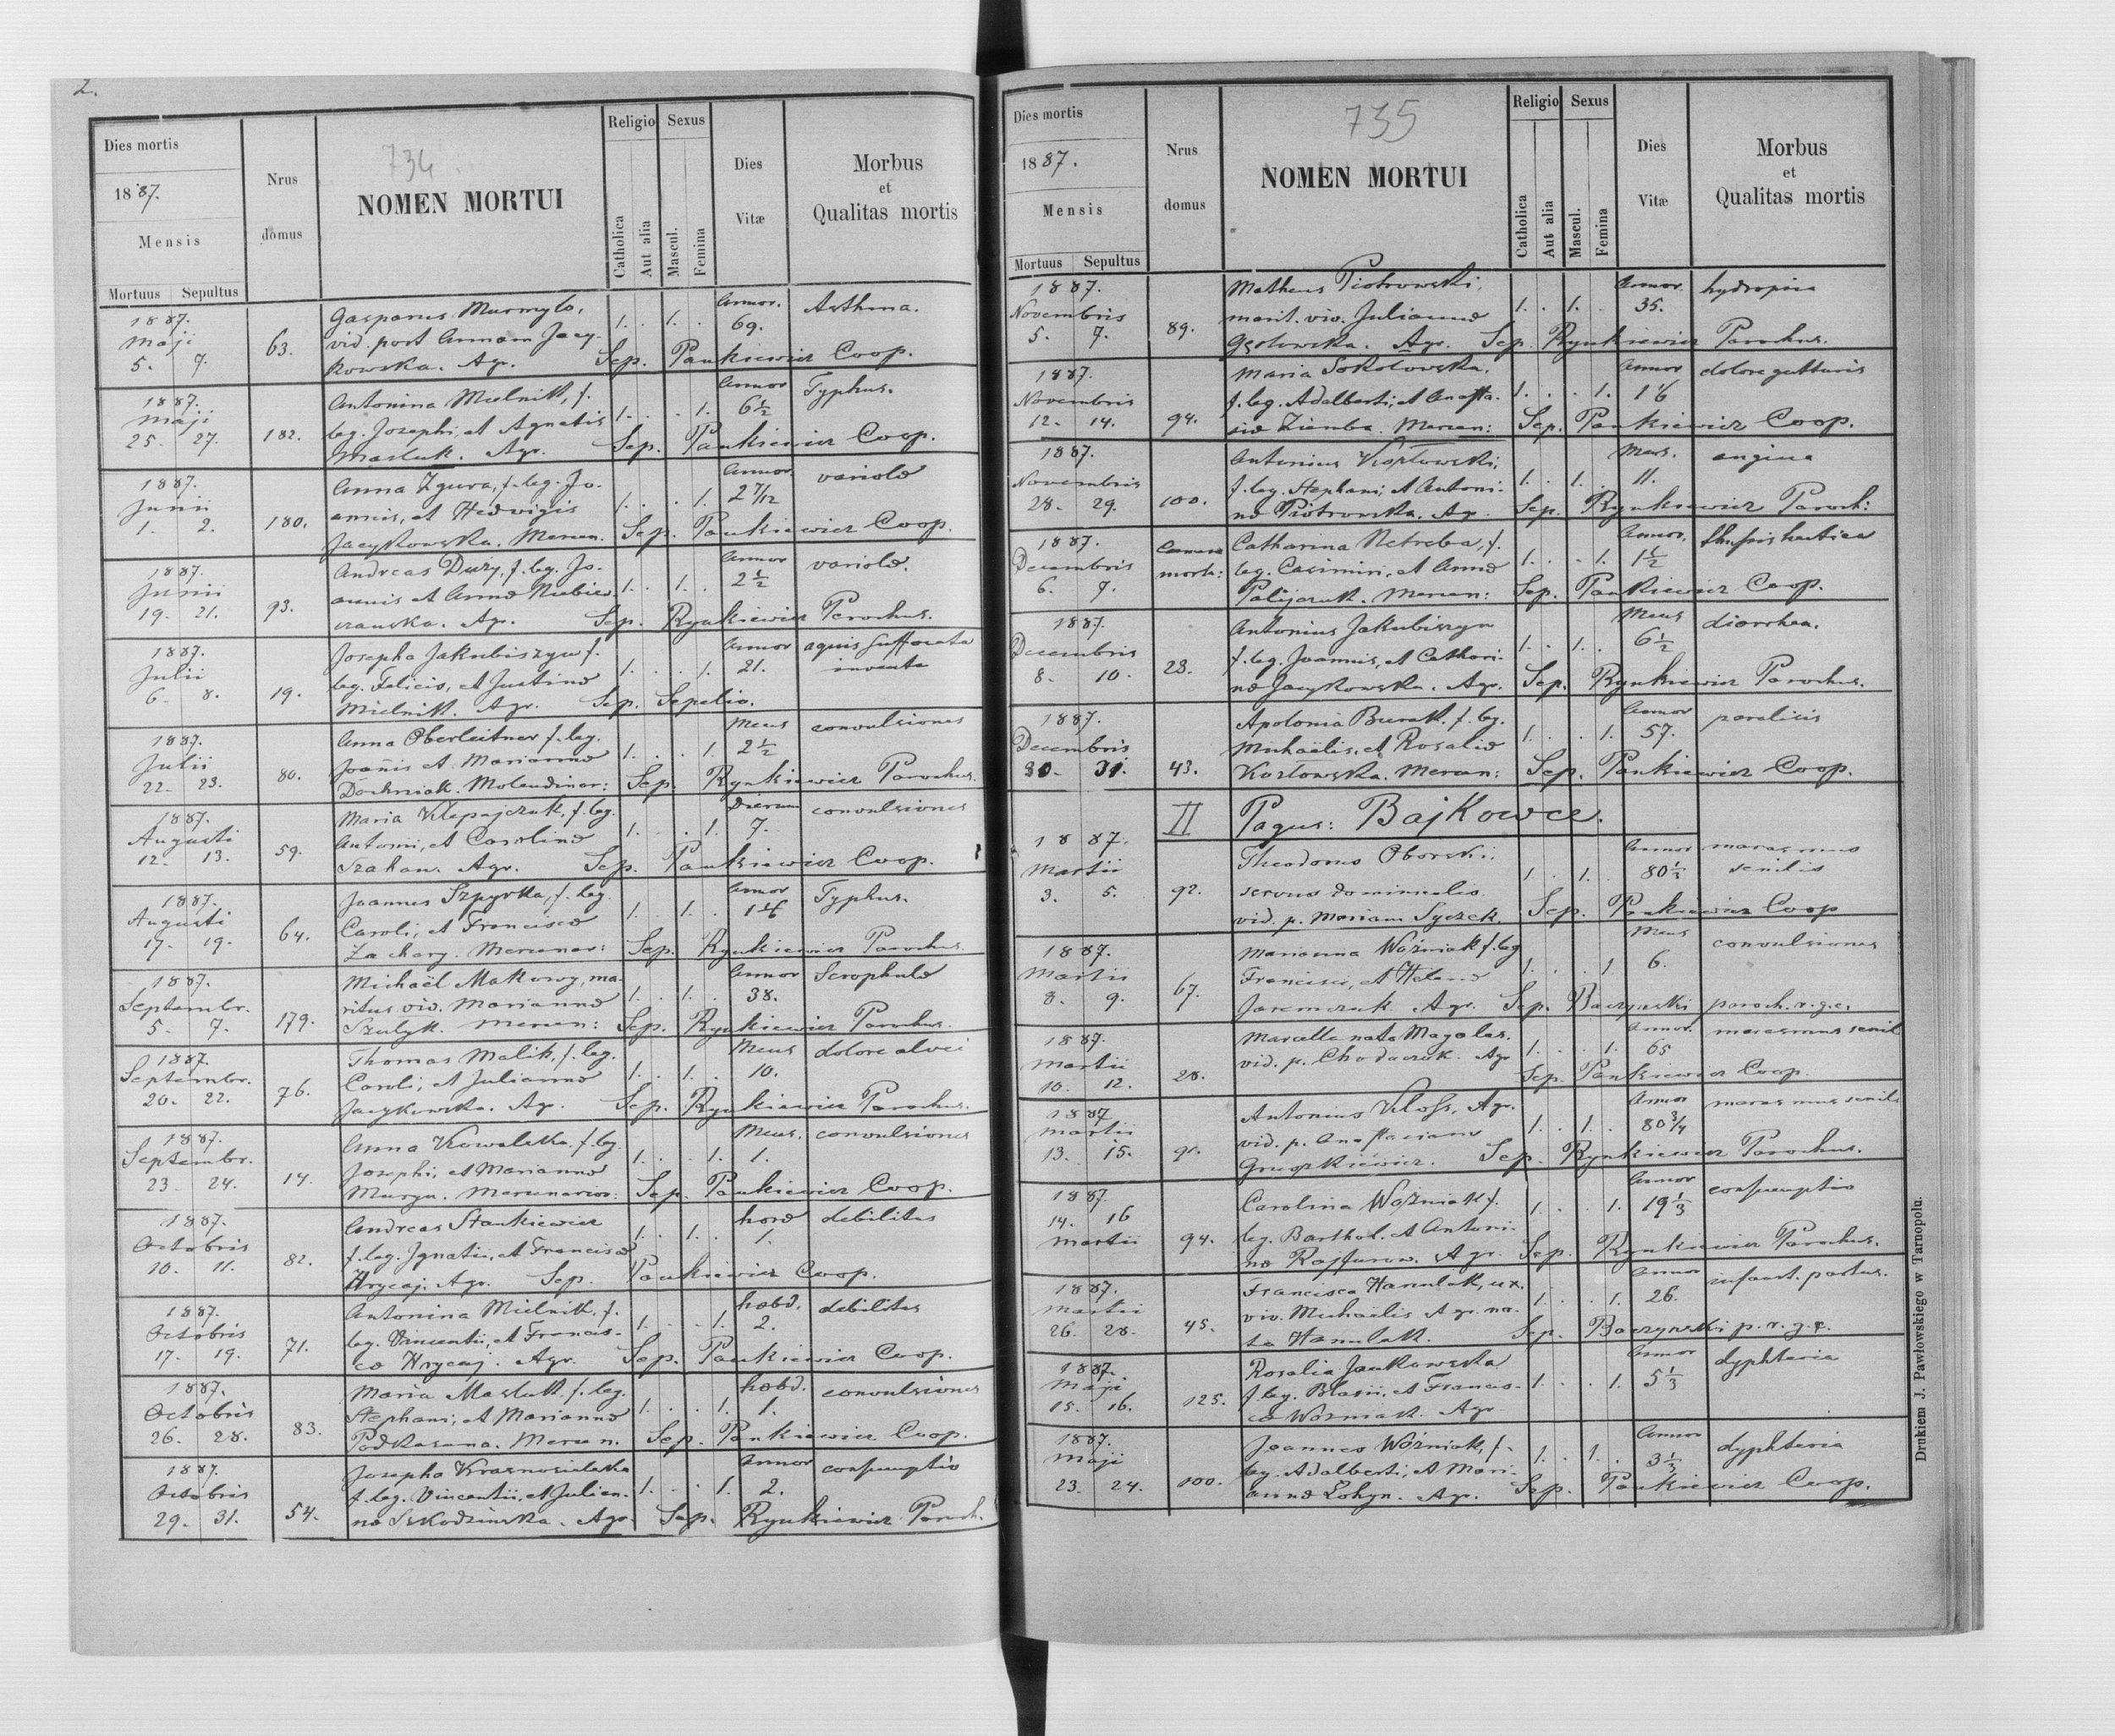 2.
734
Dies mortis
1887.
Mensis
Mortuus Sepultus
Nrus domus
NOMEN MORTUI
Religio
Catholica
Aut alia
Sexus
Mascul.
Femina
Dies Vitæ
Morbus
et
Qualitas mortis
1887. Gasparus Murmylo, 1. . 1. . Annor. Asthma.
Maji vid. post Annam Jacy- 69.
5. 7. 63. kowska. Agr. Sep. Pankiewicz Coop.
1887. Antonina Mielnik, f. Annor Typhus.
Maji leg. Josephi, et Agnetis 1. . . 1. 6½
25. 27. 182. Masluk. Agr. Sep. Pankiewicz Coop.
1887. Anna Zgura, f. leg. Jo- Annor variolæ
Junii annis, et Hedvigis 1. . . 1. 2 7/12
1. 2. 180. Jacykowska. Mercen. Sep. Pankiewicz Coop.
1887. Andreas Duży, f. leg. Jo- Annor variolæ.
Junii annis et Annæ 1. . 1. . 2½
19. 21. 93. Agr. Sep. Rynkiewicz Parochus.
1887. Josepha Jakubiszyn f. Annor aquis suffocata
Julii leg. Felicis, et Justinæ 1. . . 1. 21. inventa
6. 8. 19. Mielnik. Agr. Sep. Sepelio.
1887. Anna Oberleitner f. leg. Mens convulsiones
Julii Joañis et Mariannæ 1. . . 1. 2½
22. 23. 80. Molendinar: Sep. Rynkiewicz Parochus.
1887. Maria Klepajczuk, f. leg. Dierum convulsiones
Augusti Antonii, et Carolinæ 1. . . 1. 7.
12. 13. 59. Agr. Sep. Pankiewicz Coop.
1887. Joannes Szpyrka, f. leg. Annor Typhus.
Augusti Caroli, et Franciscæ 1. . 1. .
17. 19. 64. Zachary. Mercenar: Sep. Rynkiewicz Parochus.
1887. Michaël Makowy, ma- Annor Scrophulæ
Septembr. ritus viv. Mariannæ 1. . 1. . 38.
5. 7. 179. Szulyk. Mercen: Sep. Rynkiewicz Parochus.
1887. Thomas Malik, f. leg. Mens dolore alvei
Septembr. Caroli, et Juliannæ 1. . 1. . 10.
20. 22. 76. Jacykowska. Agr. Sep. Rynkiewicz Parochus.
1887. Anna Kowalska, f. leg. Mens. convulsiones
Septembr. Josephi, et Mariannæ 1. . . 1. 1.
23. 24. 14. Muryn. Mercenarior: Sep. Pankiewicz Coop.
1887. Andreas Stankiewicz horæ debilitas
Octobris f. leg. Ignatii, et Franciscæ 1. . 1. . 1.
10. 11. 82. Hrycaj. Agr. Sep. Pankiewicz Coop.
1887. Antonina Mielnik, f. hebd. debilitas
Octobris leg. Vincentii, et Francis- 1. . . 1. 2.
17. 19. 71. cæ Hrycaj. Agr. Sep. Pankiewicz Coop.
1887. Maria Masluk. f. leg. hebd. convulsiones
Octobris Stephani, et Mariannæ 1. . . 1. 1.
26. 28. 83. Podkasana. Mercen. Sep. Pankiewicz Coop.
1887. Josepha Krasnosielska Annor consumptio
Octobris f. leg. Vincentii, et Julian- 1. . . 1. 2.
29. 31. 54. næ Szkodzinska. Agr. Sep. Rynkiewicz Paroch.
735
Dies mortis
1887.
Mensis
Mortuus Sepultus
Nrus domus
NOMEN MORTUI
Religio
Catholica
Aut alia
Sexus
Mascul.
Femina
Dies Vitæ
Morbus
et
Qualitas mortis
1887. Matheus Piotrowski, Annor hydropisis
Novembris marit. viv. Juliannæ 1. . 1. . 35.
5. 7. 89. Agr. Sep. Rynkiewicz Parochus.
1887. Maria Sokolowska, Annor dolore gutturis
Novembris f. leg. Adalberti, et Anasta- 1. . . 1.
12. 14. 94. siæ Ziemba. Mercen: Sep. Pankiewicz Coop.
1887. Antonius Kozlowski, Mens. angina
Novembris f. leg. Stephani, et Antoni- 1. . 1. . 11.
28. 29. 100. næ Piotrowska. Agr. Sep. Rynkiewicz Paroch:
1887. Camera Catharina Netreba, f. Annor.
Decembris mort: leg. Casimiri, et Annæ 1. . . 1. 1½
6. 7. Palijczuk. Mercen: Sep. Pankiewicz Coop.
1887. Antonius Jakubiszyn Mens diarrhea.
Decembris f. leg. Joannis, et Cathari- 1. . 1. . 6½
8. 10. 23. næ Jacykowska. Agr. Sep. Rynkiewicz Parochus.
1887. Apolonia Burak. f. leg. Annor paralisis
Decembris Michaëlis, et Rosaliæ 1. . . 1. 57.
30. 31. 43. Kozlowska. Mercen: Sep. Pankiewicz Coop.
II Pagus: Bajkowce.
1887. Theodorus Oborski, Annor marasmus
Martii servus dominicalis 1. . 1. . 80⅓ senilis
3. 5. 92. vid. p. Mariam Syczek. Sep. Pankiewicz Coop
1887. Marianna Woźniak f. leg Mens convulsiones
Martii Francisci, et Helenæ 1. . . 1. 6.
8. 9. 67. Jaremczuk Agr. Sep. Baczynski paroch. r. g. c.
1887. Marcella nata Magolas. Annor. marasmus senil
Martii vid. p. Chodaczuk. Agr 1. . . 1. 65
10. 12. 28. Sep. Pankiewicz Coop.
1887 Antonius Kloss, Agr. Annor marasmus senil
Martii vid. p. Anastasiam 1. . 1. . 80¾
13. 15. Sep. Rynkiewicz Parochus.
1887 Carolina Woźniak f. Annor consumptio
14. 16 leg. Barthol. et Antoni- 1. . . 1. 19⅓
Martii 94. Agr. Sep. Rynkiewicz Parochus.
1887. Francisca Hanulak, ux. Annor infaust. partus.
Martii viv. Michaëlis Agr. na- 1. . . 1. 26.
26. 28. 45. ta Hanulak. Sep. Baczynski p. r. g. c.
1887. Rosalia Jankowska Annor dyphteria
Maji f. leg. Blasii, et Francis- 1. . . 1. 5⅓
15. 16. 125. cæ Wozniak. Agr
1887. Joannes Woźniak, f. Annor dyphteria
Maji leg. Adalberti, et Mari- 1. . 1. . 3⅓
23. 24. 100. annæ Łohyn. Agr. Sep. Pankiewicz Coop.
Drukiem J. Pawłowskiego w Tarnopolu.